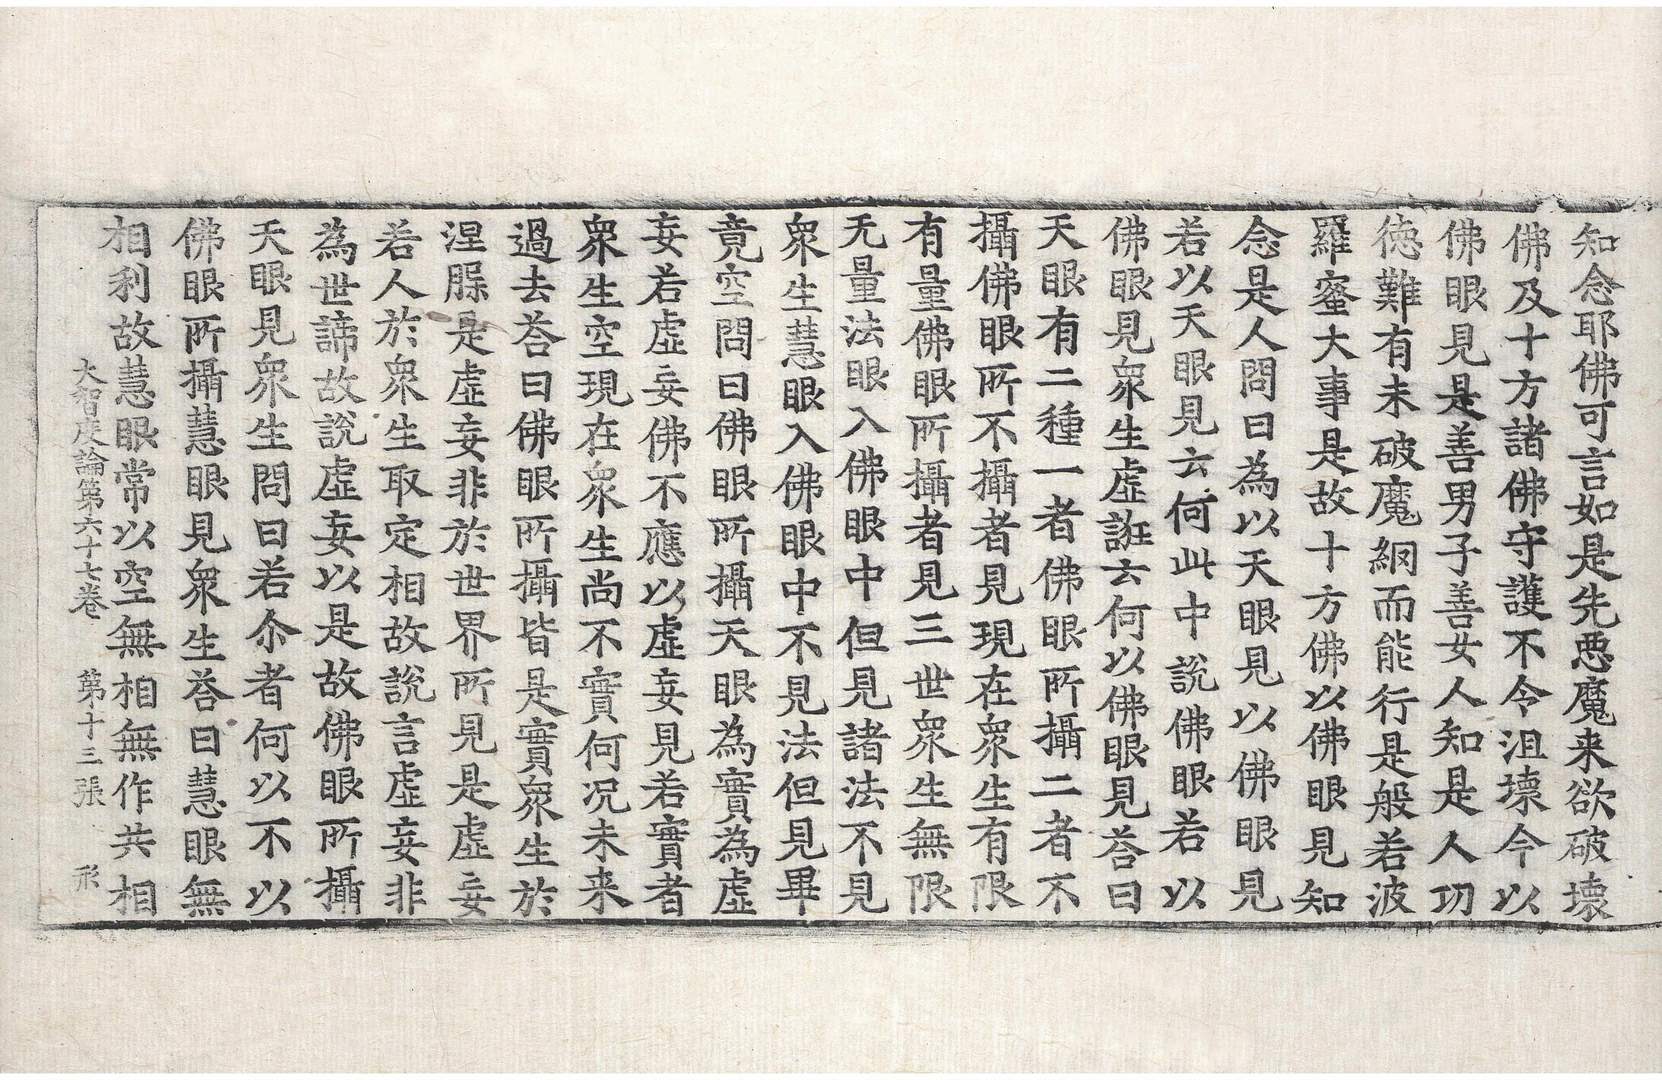 知念耶佛可言如是先惡魔来欲破壞
佛及十方諸佛守護不令沮壞今以
佛眼見是善男子善女人知是人功
徳難有未破魔網而能行是般若波
羅蜜大事是故十方佛以佛眼見知
念是人問曰為以天眼見以佛眼見
若以天眼見云何此中說佛眼若以
佛眼見衆生虛誑云何以佛眼見荅曰
天眼有二種一者佛眼所攝二者不
攝佛眼所不攝者見現在衆生有限
有量佛眼所攝者見三世衆生無限
无量法眼入佛眼中但見諸法不見
衆生慧眼入佛眼中不見法但見畢
竟空問曰佛眼所攝天眼為實為虛
妄若虛妄佛不應以虛妄見若實者
衆生空現在衆生尚不實何况未来
過去荅曰佛眼所攝皆是實衆生於
涅槃是虛妄非於世界所見是虛妄
若人於衆生取定相故說言虛妄非
為世諦故說虛妄以是故佛眼所攝
天眼見衆生問曰若尒者何以不以
佛眼所攝慧眼見衆生荅曰慧眼無
相利故慧眼常以空無相無作共相
大智度論第六十七卷 第十三張 形